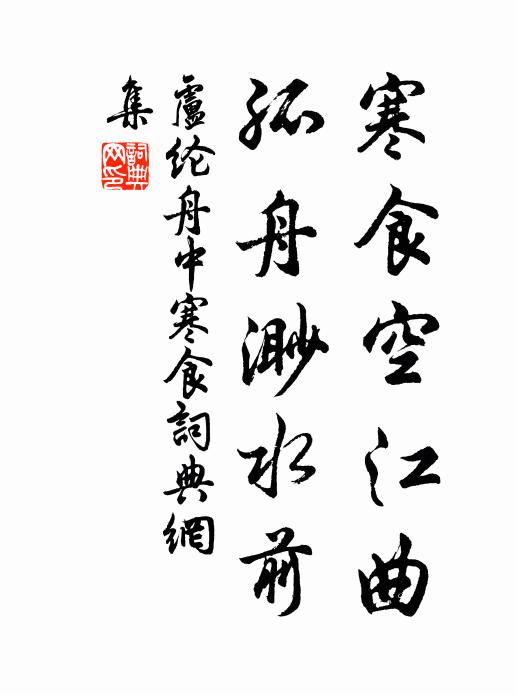 寒食空江曲
孤舟渺水前
盧纶舟中寒食詞典網
集
詞典网印